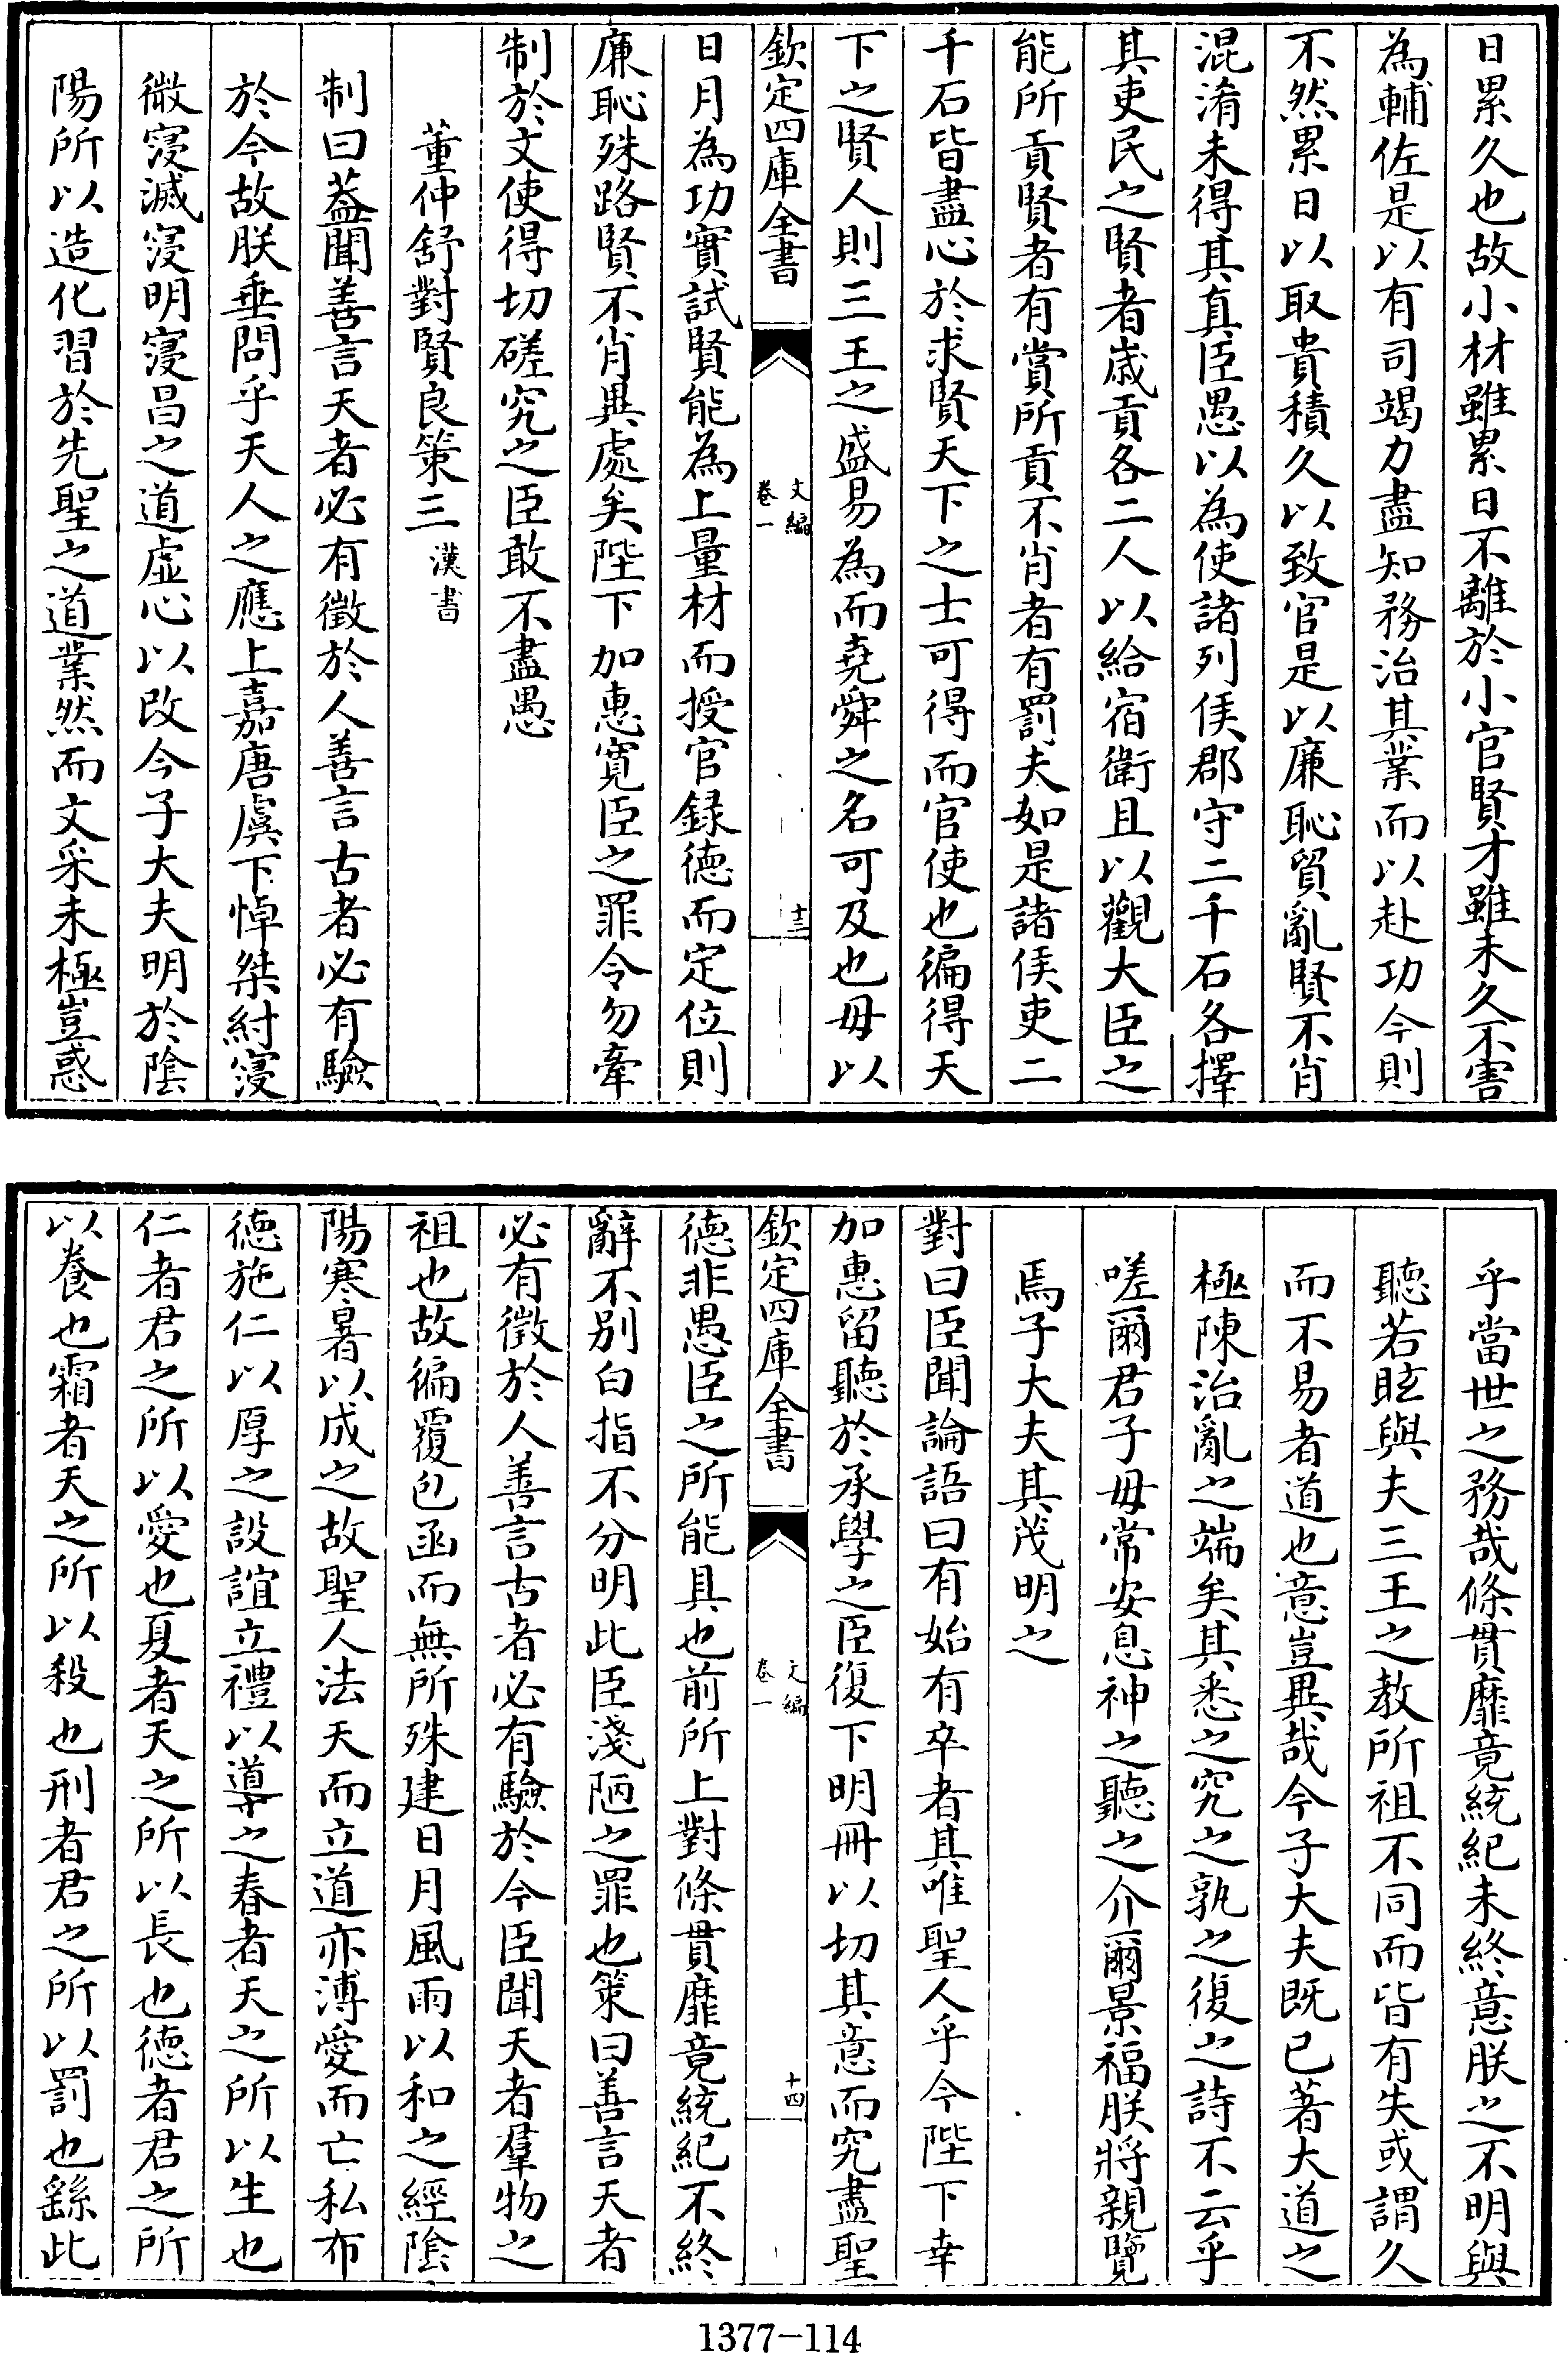 日累久也故小材雖累日不離於小官賢才雖未久不害
為輔佐是以有司竭力盡知務治其業而以赴功今則
不然累日以取貴積久以致官是以廉恥貿亂賢不肖
混淆未得其真臣愚以為使諸列侯郡守二千石各擇
其吏民之賢者歲貢各二人以給宿衛且以觀大臣之
能所貢賢者有賞所貢不肖者有罰夫如是諸侯吏二
千石皆盡心於求賢天下之士可得而官使也徧得天
下之賢人則三王之盛易為而堯舜之名可及也毋以
欽定四庫全書
文編
卷一
十三
日月為功實試賢能為上量材而授官録德而定位則
廉恥殊路賢不肖異處矣陛下加惠寛臣之罪令勿牽
制於文使得切磋究之臣敢不盡愚
董仲舒對賢良策三 漢書
制曰葢聞善言天者必有徵於人善言古者必有驗
於今故朕垂問乎天人之應上嘉唐虞下悼桀紂寖
微寖滅寖明寖昌之道虛心以改今子大夫明於陰
陽所以造化習於先聖之道業然而文采未極豈惑
乎當世之務哉條貫靡竟統紀未終意朕之不明與
聽若眩與夫三王之教所祖不同而皆有失或謂久
而不易者道也意豈異哉今子大夫既已著大道之
極陳治亂之端矣其悉之究之孰之復之詩不云乎
嗟爾君子毋常安息神之聽之介爾景福朕將親覽
焉子大夫其茂明之
對曰臣聞論語曰有始有卒者其唯聖人乎今陛下幸
加惠留聽於承學之臣復下明冊以切其意而究盡聖
欽定四庫全書
文編
卷一
十四
德非愚臣之所能具也前所上對條貫靡竟統紀不終
辭不别白指不分明此臣淺陋之罪也策曰善言天者
必有徵於人善言古者必有驗於今臣聞天者羣物之
祖也故徧覆包函而無所殊建日月風雨以和之經陰
陽寒暑以成之故聖人法天而立道亦溥愛而亡私布
德施仁以厚之設誼立禮以導之春者天之所以生也
仁者君之所以愛也夏者天之所以長也德者君之所
以養也霜者天之所以殺也刑者君之所以罰也繇此
1377-114